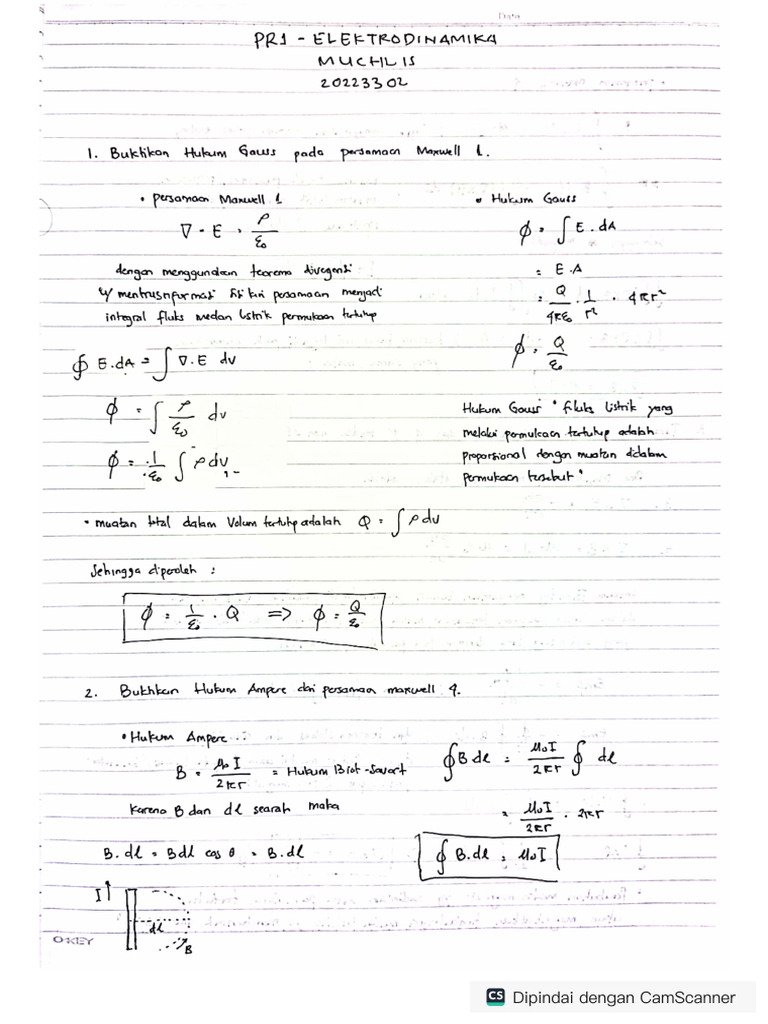 Date
PR1 - ELEKTRODINAMIKA
MUCHLIS
20223302
1. Buktikan Hukum Gauss pada persamaan Maxwell 1.
• Persamaan Maxwell 1
∇ · E = ρ/ε₀
dengan menggunakan teorema divergensi
integral fluks medan listrik permukaan tertutup
∮ E.dA = ∫ ∇.E dv
ϕ = ∫ ρ/ε₀ dv
ϕ = 1/ε₀ ∫ ρ dv
• Hukum Gauss
ϕ = ∫ E.dA
= E.A
= Q/4πε₀ · 1/r² · 4πr²
ϕ = Q/ε₀
Hukum Gauss "fluks listrik yang
melalui permukaan tertutup adalah
proporsional dengan muatan didalam
permukaan tersebut".
• muatan total dalam Volum tertutup adalah Q = ∫ ρ dv
Sehingga diperoleh :
ϕ = 1/ε₀ · Q => ϕ = Q/ε₀
2. Buktikan Hukum Ampere dari persamaan maxwell 4.
• Hukum Ampere
B = μ₀ I/2πr = Hukum Biot-Savart
Karena B dan dl searah maka
B.dl = Bdl cos θ = B.dl
∮ B dl = μ₀I/2πr ∮ dl
= μ₀I/2πr · 2πr
∮ B.dl = μ₀I
I↑
dl
B
OKEY
CS Dipindai dengan CamScanner